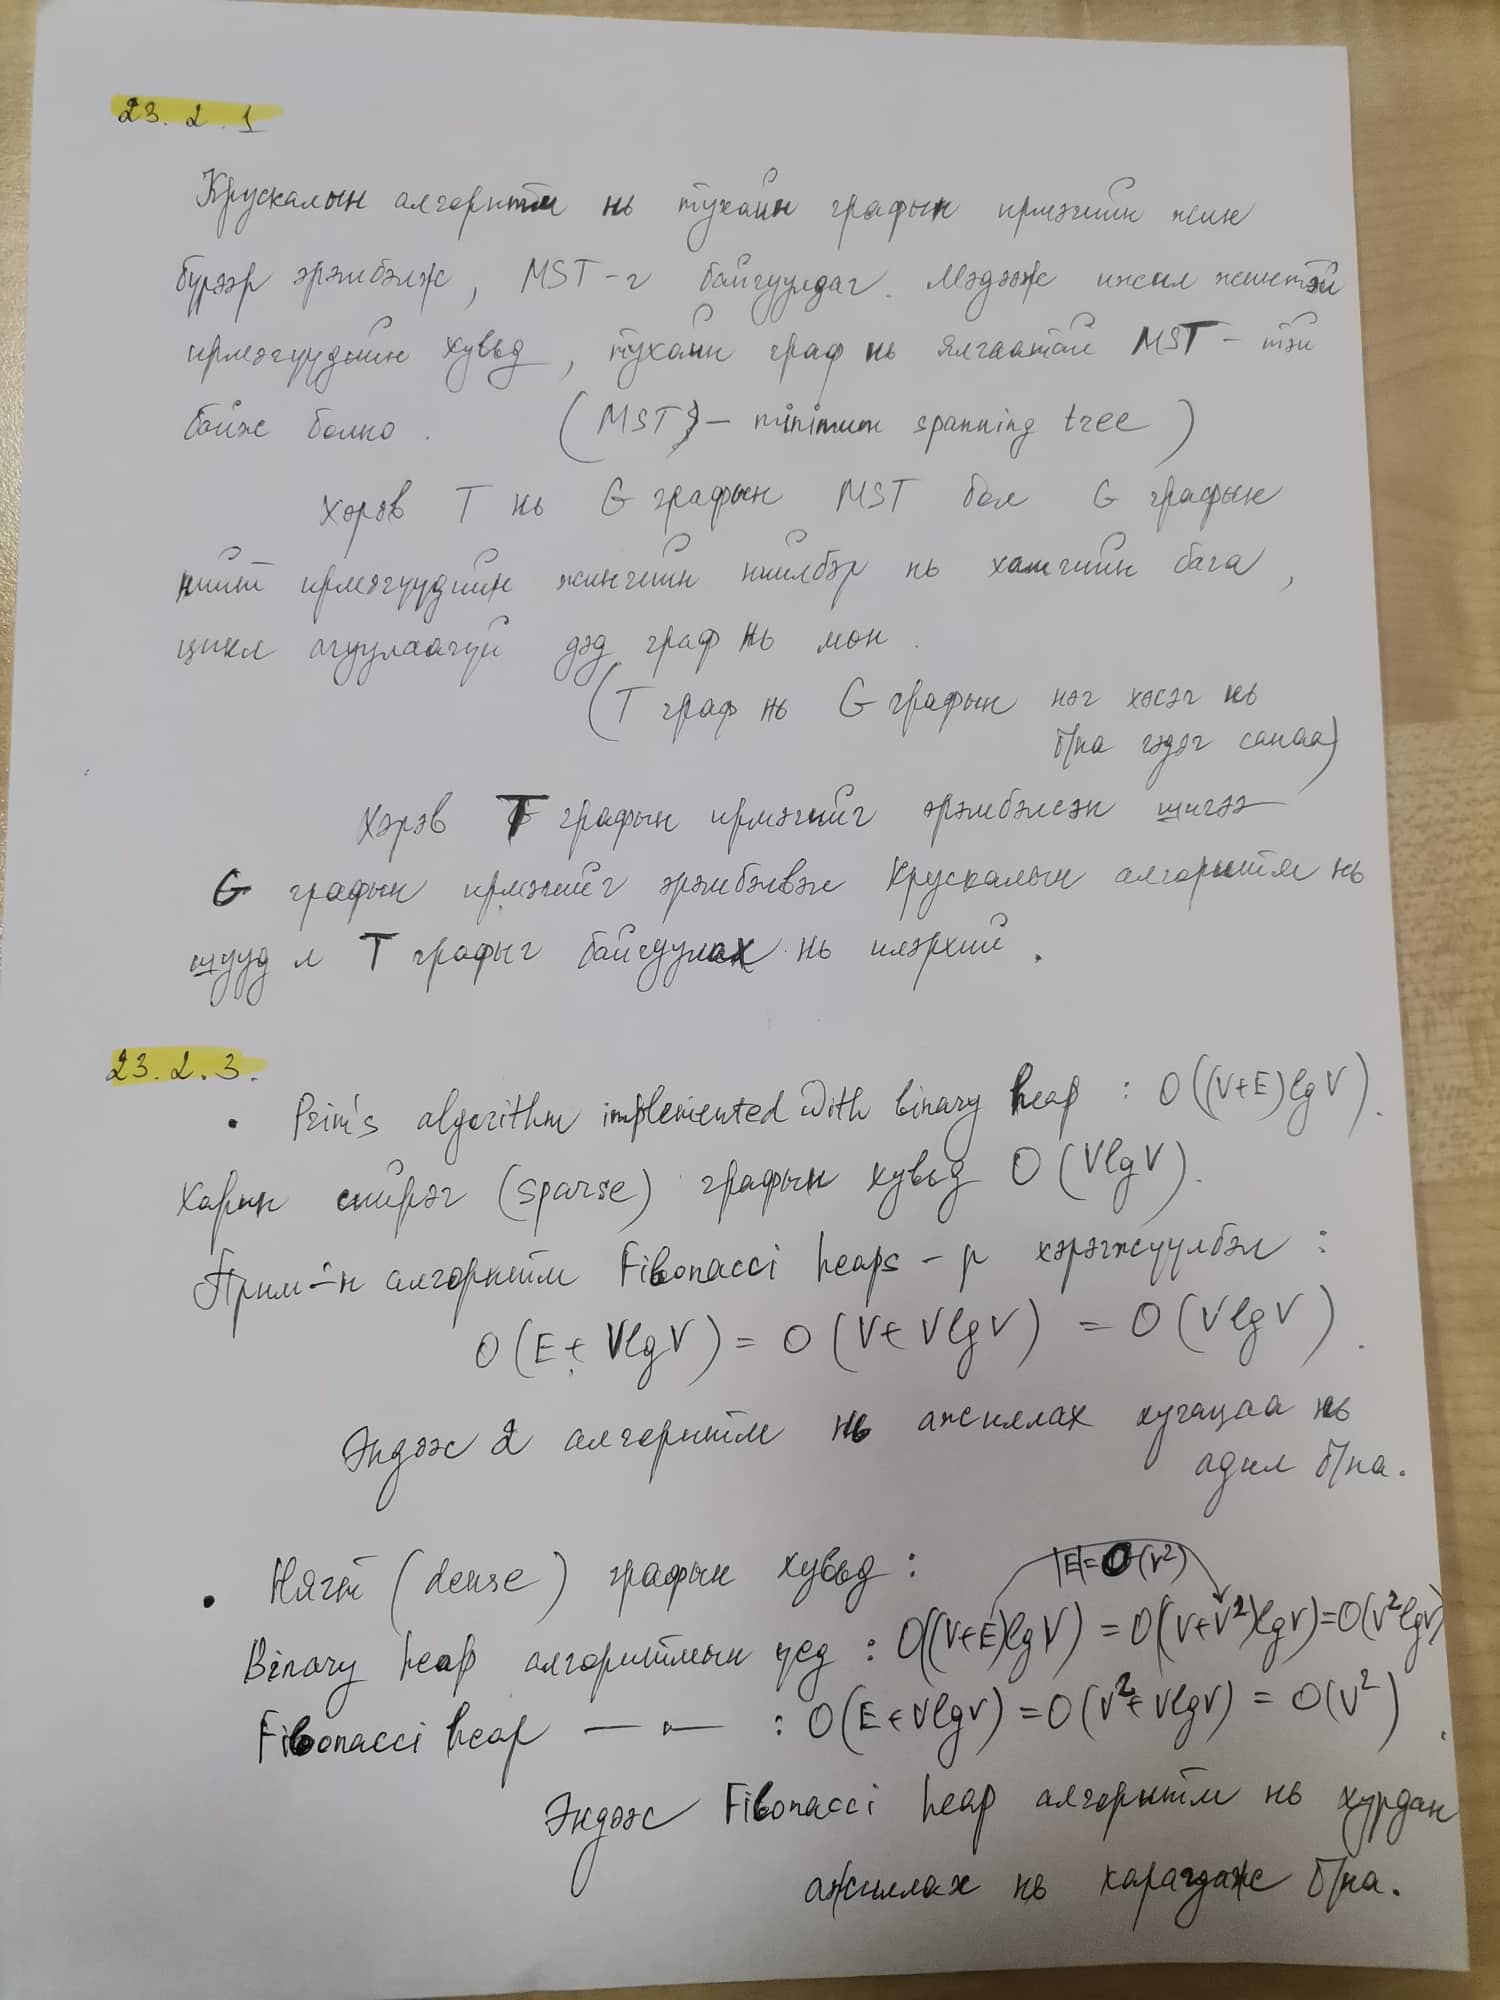 23. 2. 1
Крускалын алгоритм нь тухайн графын ирмэгийн жин
бүрээр эрэмбэлж, MST-г байгуулдаг. Мэдээж ижил жинтэй
ирмэгүүдийн хувьд, тухайн граф нь ялгаатай MST-тэй
байж болно. (MST) - minimum spanning tree)
Хэрэв T нь G графын MST бол G графын
нийт ирмэгүүдийн жингийн нийлбэр нь хамгийн бага,
цикл агуулаагүй дэд граф нь мөн.
(T граф нь G графын нэг хэсэг нь
б/на гэдэг санаа)
Хэрэв T графын ирмэгийг эрэмбэлсэн шигээ
G графын ирмэгийг эрэмбэлвэл Крускалын алгоритм нь
шууд л T графыг байгуулах нь илэрхий.
23. 2. 3.
• Prim's algorithm implemented with binary heap : O((V+E)lgV).
Харин сийрэг (sparse) графын хувьд O(VlgV).
Прим-н алгоритм Fibonacci heaps-р хэрэгжүүлбэл :
O(E+VlgV) = O(V+VlgV) = O(VlgV).
Эндээс 2 алгоритм нь ажиллах хугацаа нь
адил б/на.
|E|=O(V²)
• Нягт (dense) графын хувьд :
Binary heap алгоритмын үед : O((V+E)lgV) = O((V+V²)lgV)=O(V²lgV)
Fibonacci heap — 〃 — : O(E+VlgV) = O(V²+VlgV) = O(V²).
Эндээс Fibonacci heap алгоритм нь хурдан
ажиллах нь харагдаж б/на.